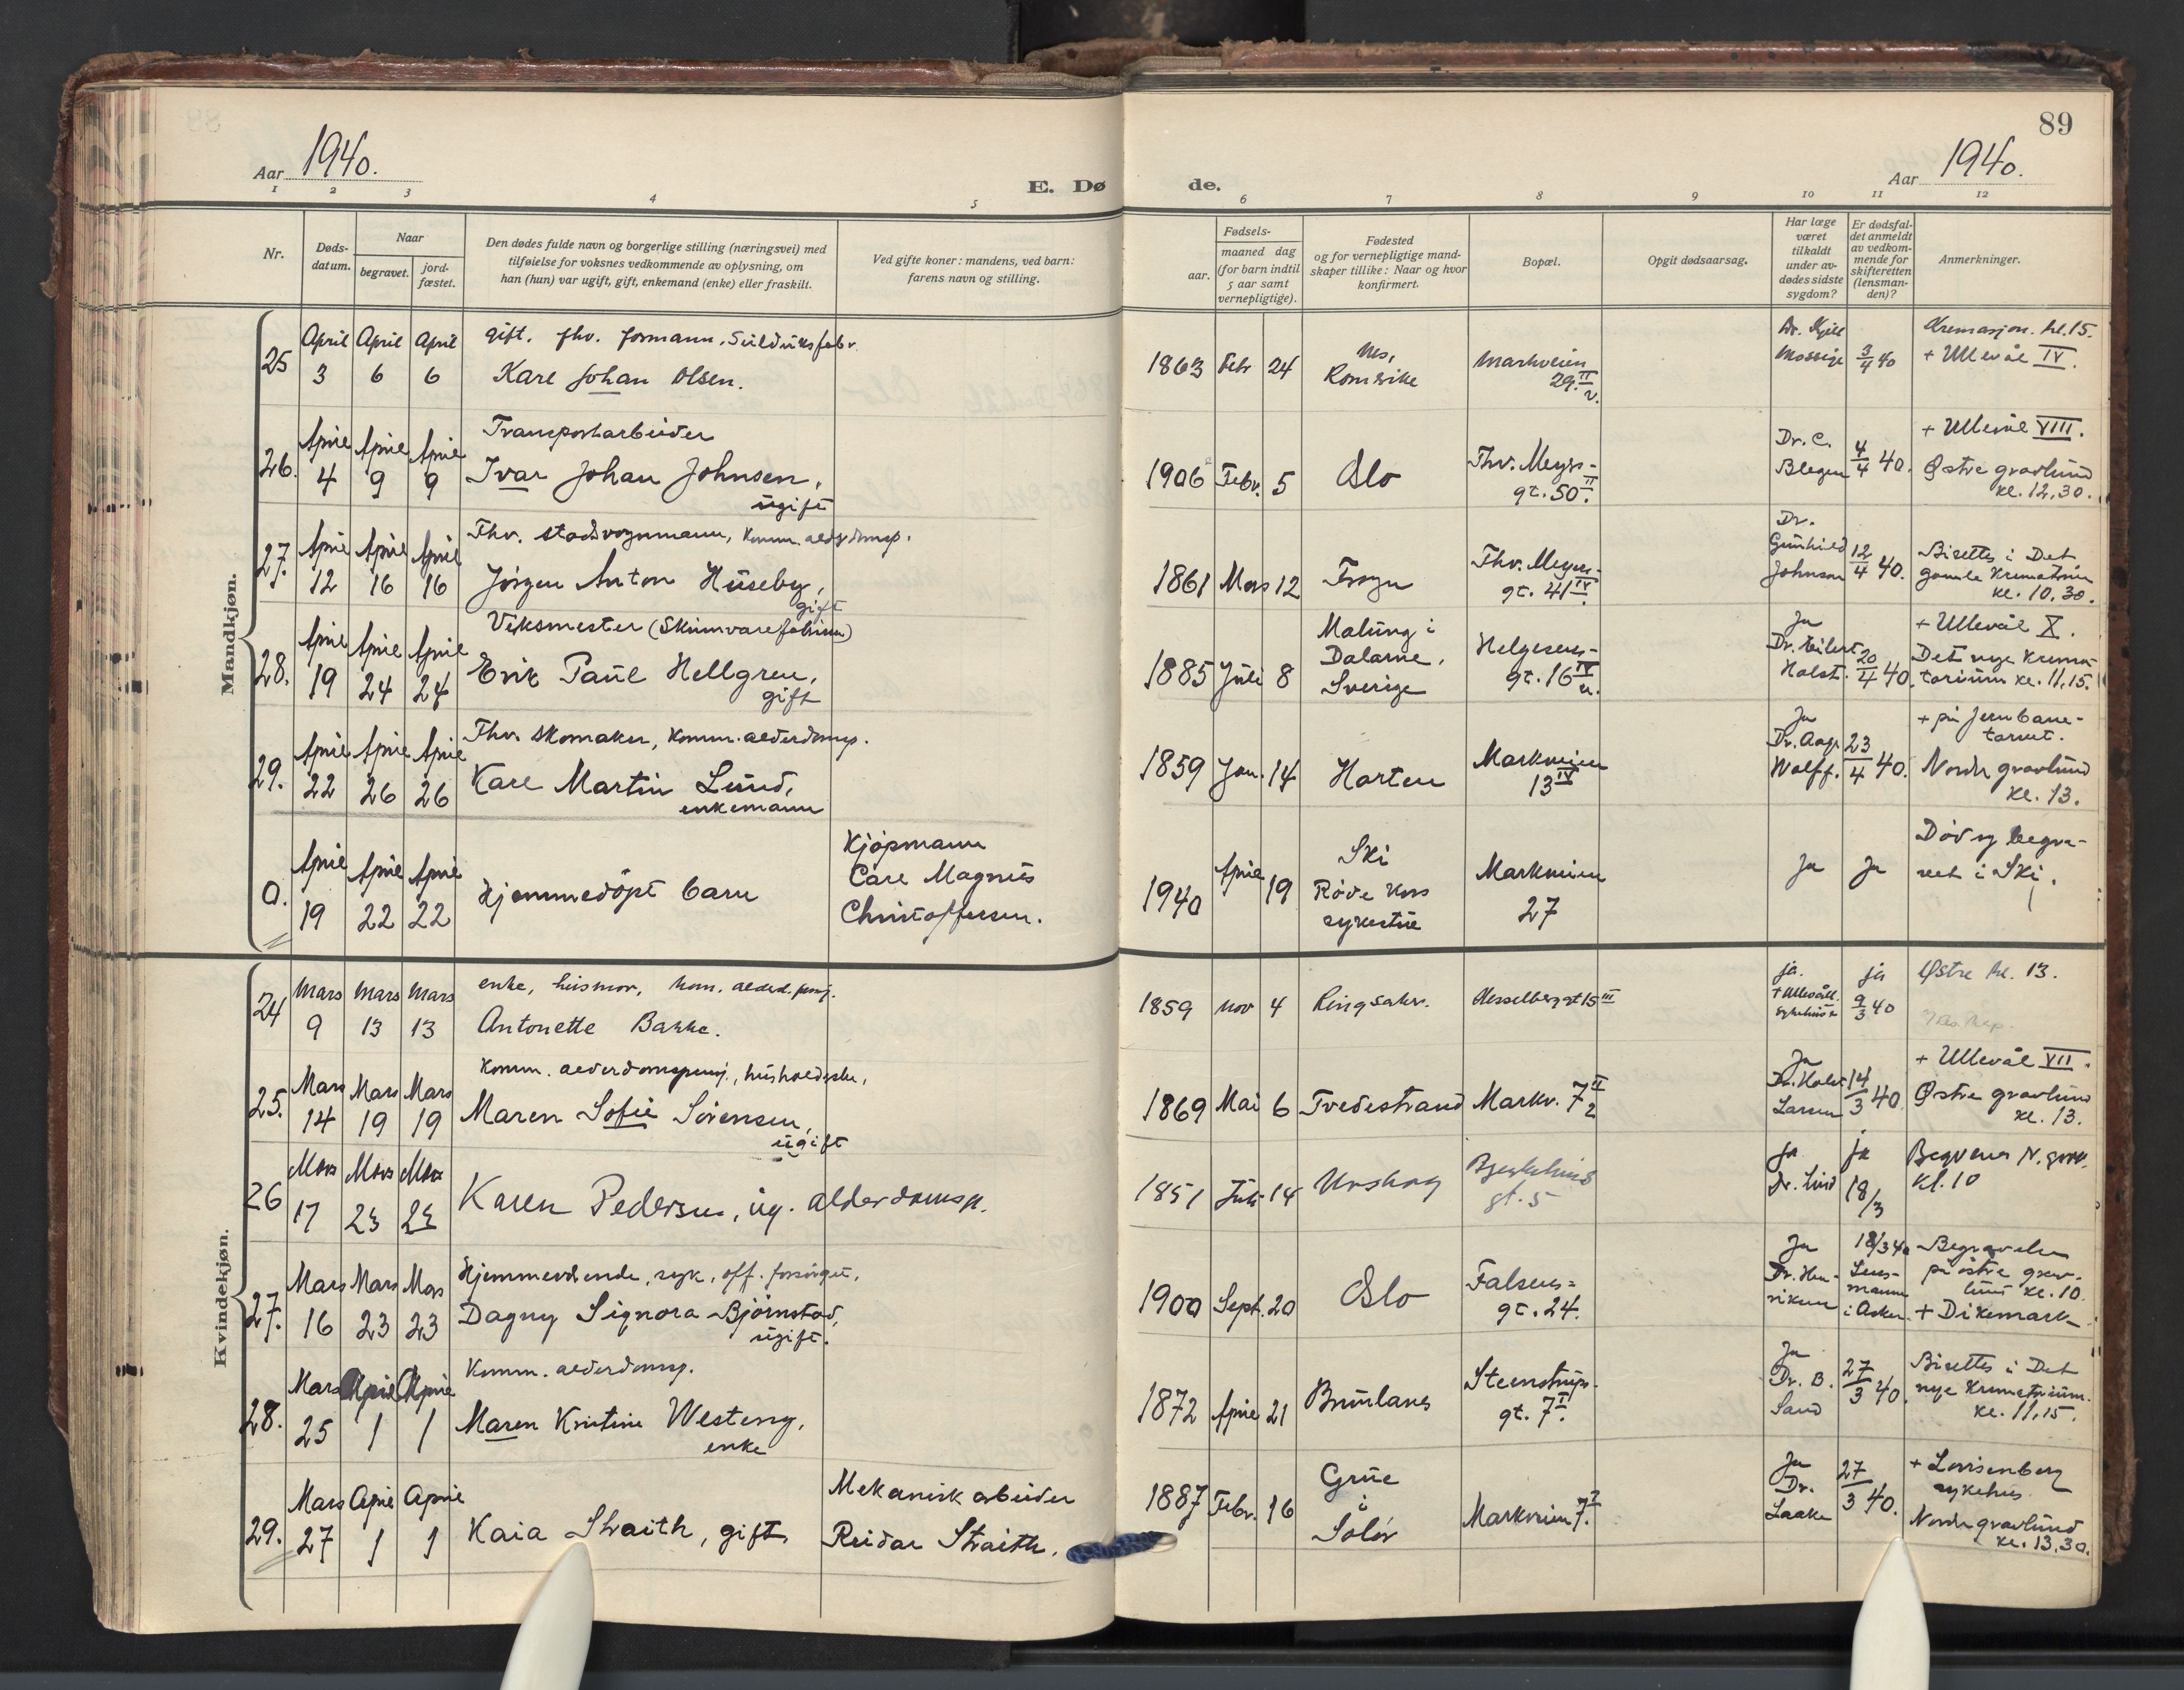 89
Aar 1940.
E. Døde.
Aar 1940.
1 2 3 4 5 6 7 8 9 10 11 12
Nr.
Døds-
datum.
Naar
begravet.
jord-
fæstet.
Den dødes fulde navn og borgerlige stilling (næringsvei) med
tilføielse for voksnes vedkommende av oplysning, om
han (hun) var ugift, gift, enkemand (enke) eller fraskilt.
Ved gifte koner: mandens, ved barn:
farens navn og stilling.
Fødsels-
aar.
maaned dag
(for barn indtil
5 aar samt
vernepligtige).
Fødested
og for vernepligtige mand-
skaper tillike: Naar og hvor
konfirmert.
Bopæl.
Opgit dødsaarsag.
Har læge
været
tilkaldt
under av-
dødes sidste
sygdom?
Er dødsfal-
det anmeldt
av vedkom-
mende for
skifteretten
(lensman-
den)?
Anmerkninger.
Mandkjøn.
25 April 3 April 6 April 6
gift. fhv. formann.
Karl Johan Olsen.
1863 Febr 24
Nes,
Romerike
Markveien
29 II v.
Dr. Kjell
Mossige
3/4 40
Kremasjon. kl. 15.
+ Ullevål IV.
26. April 4 April 9 April 9
Transportarbeider
Ivar Johan Johnsen,
ugift
1906 Febr. 5
Oslo
Thv. Meyers-
gt. 50 II.
Dr. C.
Blegen
4/4 40.
+ Ullevål VIII.
Østre gravlund
kl. 12,30.
27. April 12 April 16 April 16
Fhv. stadsvognmann, komm. aldersdomsp.
Jørgen Anton Huseby,
gift
1861 Mars 12
Frogn
Thv. Meyers-
gt. 41 IV.
Dr.
Gunhild
Johnson
12/4 40.
Bisettes i Det
gamle krematorium
kl. 10,30.
28. April 19 April 24 April 24
Verksmester (Skinnvarefabrikken)
Erik Paul Hellgren,
gift
1885 Juli 8
Malung i
Dalarne,
Sverige
Helgesens-
gt. 16 IV
Ja
Dr. Eilert
Holst.
20/4 40.
+ Ullevål X.
Det nye krema-
torium kl. 11,15.
29. April 22 April 26 April 26
Fhv. skomaker, komm. alderdomsp.
Karl Martin Lund,
enkemann
1859 Jan. 14
Horten
Markveien
13 IV
Ja
Dr. Aage
Wolff.
23/4 40.
+ på Jernbane-
torvet.
Nordre gravlund
kl. 13.
0. April 19 April 22 April 22
Hjemmedøpt barn
Kjøpmann
Carl Magnus
Christoffersen.
1940 April 19
Ski
Røde Kors
sykestue
Markveien
27
Ja
Ja
Død og begra-
vet i Ski.
Kvindekjøn.
24 Mars 9 Mars 13 Mars 13
enke, husmor, kom. alderd. pensj.
Antonette Bakke.
1859 nov 4
Ringsaker.
Hesselberggt 15 III
ja.
+ Ullevåll
sykehus
ja
9/3 40
Østre kl. 13.
25. Mars 14 Mars 19 Mars 19
Komm. alderdomspensj., husholderske,
Maren Sofie Sørensen,
ugift
1869 Mai 6
Tvedestrand
Markv. 7 II 2
Ja
Dr. Holst
Larsen
14/3 40
+ Ullevål VII.
Østre gravlund
kl. 13.
26 Mars 17 Mars 23 Mars 23
Karen Pedersen, ug. alderdomsp.
1851 Juli 14
Urskog
gt. 5
ja
Dr. Lind
ja
18/3
Begraves N. gravl.
kl. 10
27. Mars 16 Mars 23 Mars 23
Hjemmeværende, syk, off. forsørget,
Dagny Signora Bjørnstad,
ugift.
1900 Sept. 20
Oslo
Falsens-
gt. 24.
Ja
Dr. Hen-
riksen
18/3 40
Lens-
mann
i Asker.
Begravelse
på østre grav-
lund kl. 10.
+ Dikemark
28. Mars 25 April 1 April 1
Komm. alderdomsp.
Maren Kristine Westeng,
enke
1872 April 21
Brunlanes
Steenstrups-
gt. 7 I.
Ja
Dr. B.
Sand
27/3 40.
Bisettes i Det
nye Krematorium.
kl. 11,15.
29. Mars 27 April 1 April 1
Kaia Straith, gift
Mekanisk arbeider
Reidar Straith.
1887 Febr. 16
Grue
i
Solør
Markveien 7.
Ja
Dr.
Laake
27/3 40.
+ Lovisenberg
sykehus
Nordre gravlund
kl. 13,30.